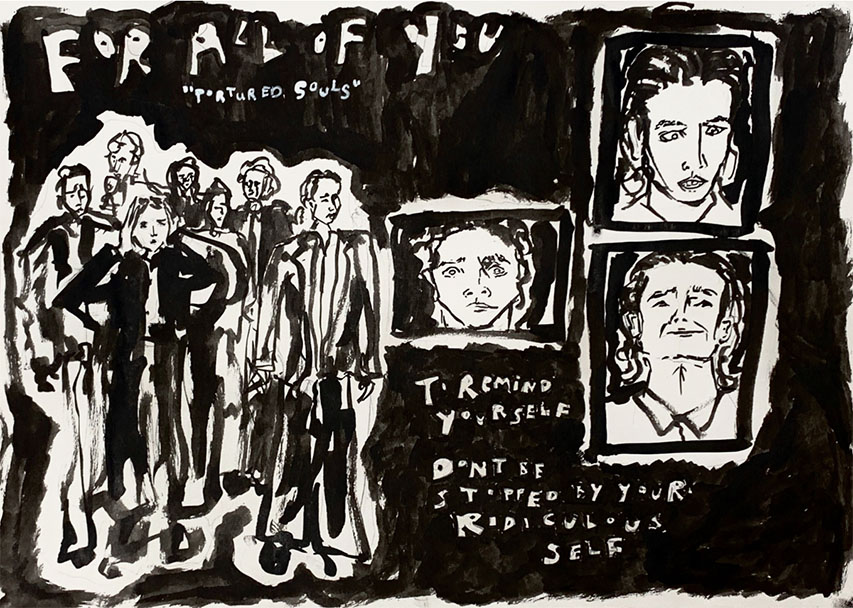 FOR ALL OF YOU
"TORTURED SOULS"
TO REMIND
YOURSELF
DONT BE
STOPPED BY YOUR
RIDICULOUS
SELF